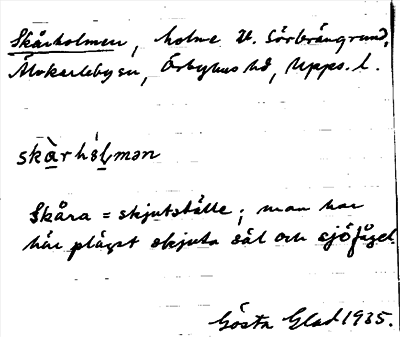 Skårholmen, holme V. Sörbrängrund,
Älvkarleby sn, Örbyhus hd, Upps. l.
skàrhólmən
Skåra = skjutställe; man har
här plägat skjuta säl och sjöfågel.
Gösta Glad 1935.